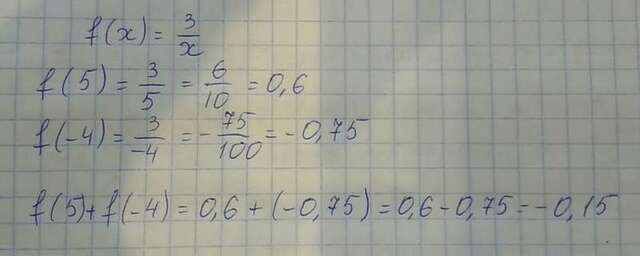 f(x) = 3/x
f(5) = 3/5 = 6/10 = 0,6
f(-4) = 3/-4 = -75/100 = -0,75
f(5)+f(-4) = 0,6+(-0,75) = 0,6-0,75 = -0,15